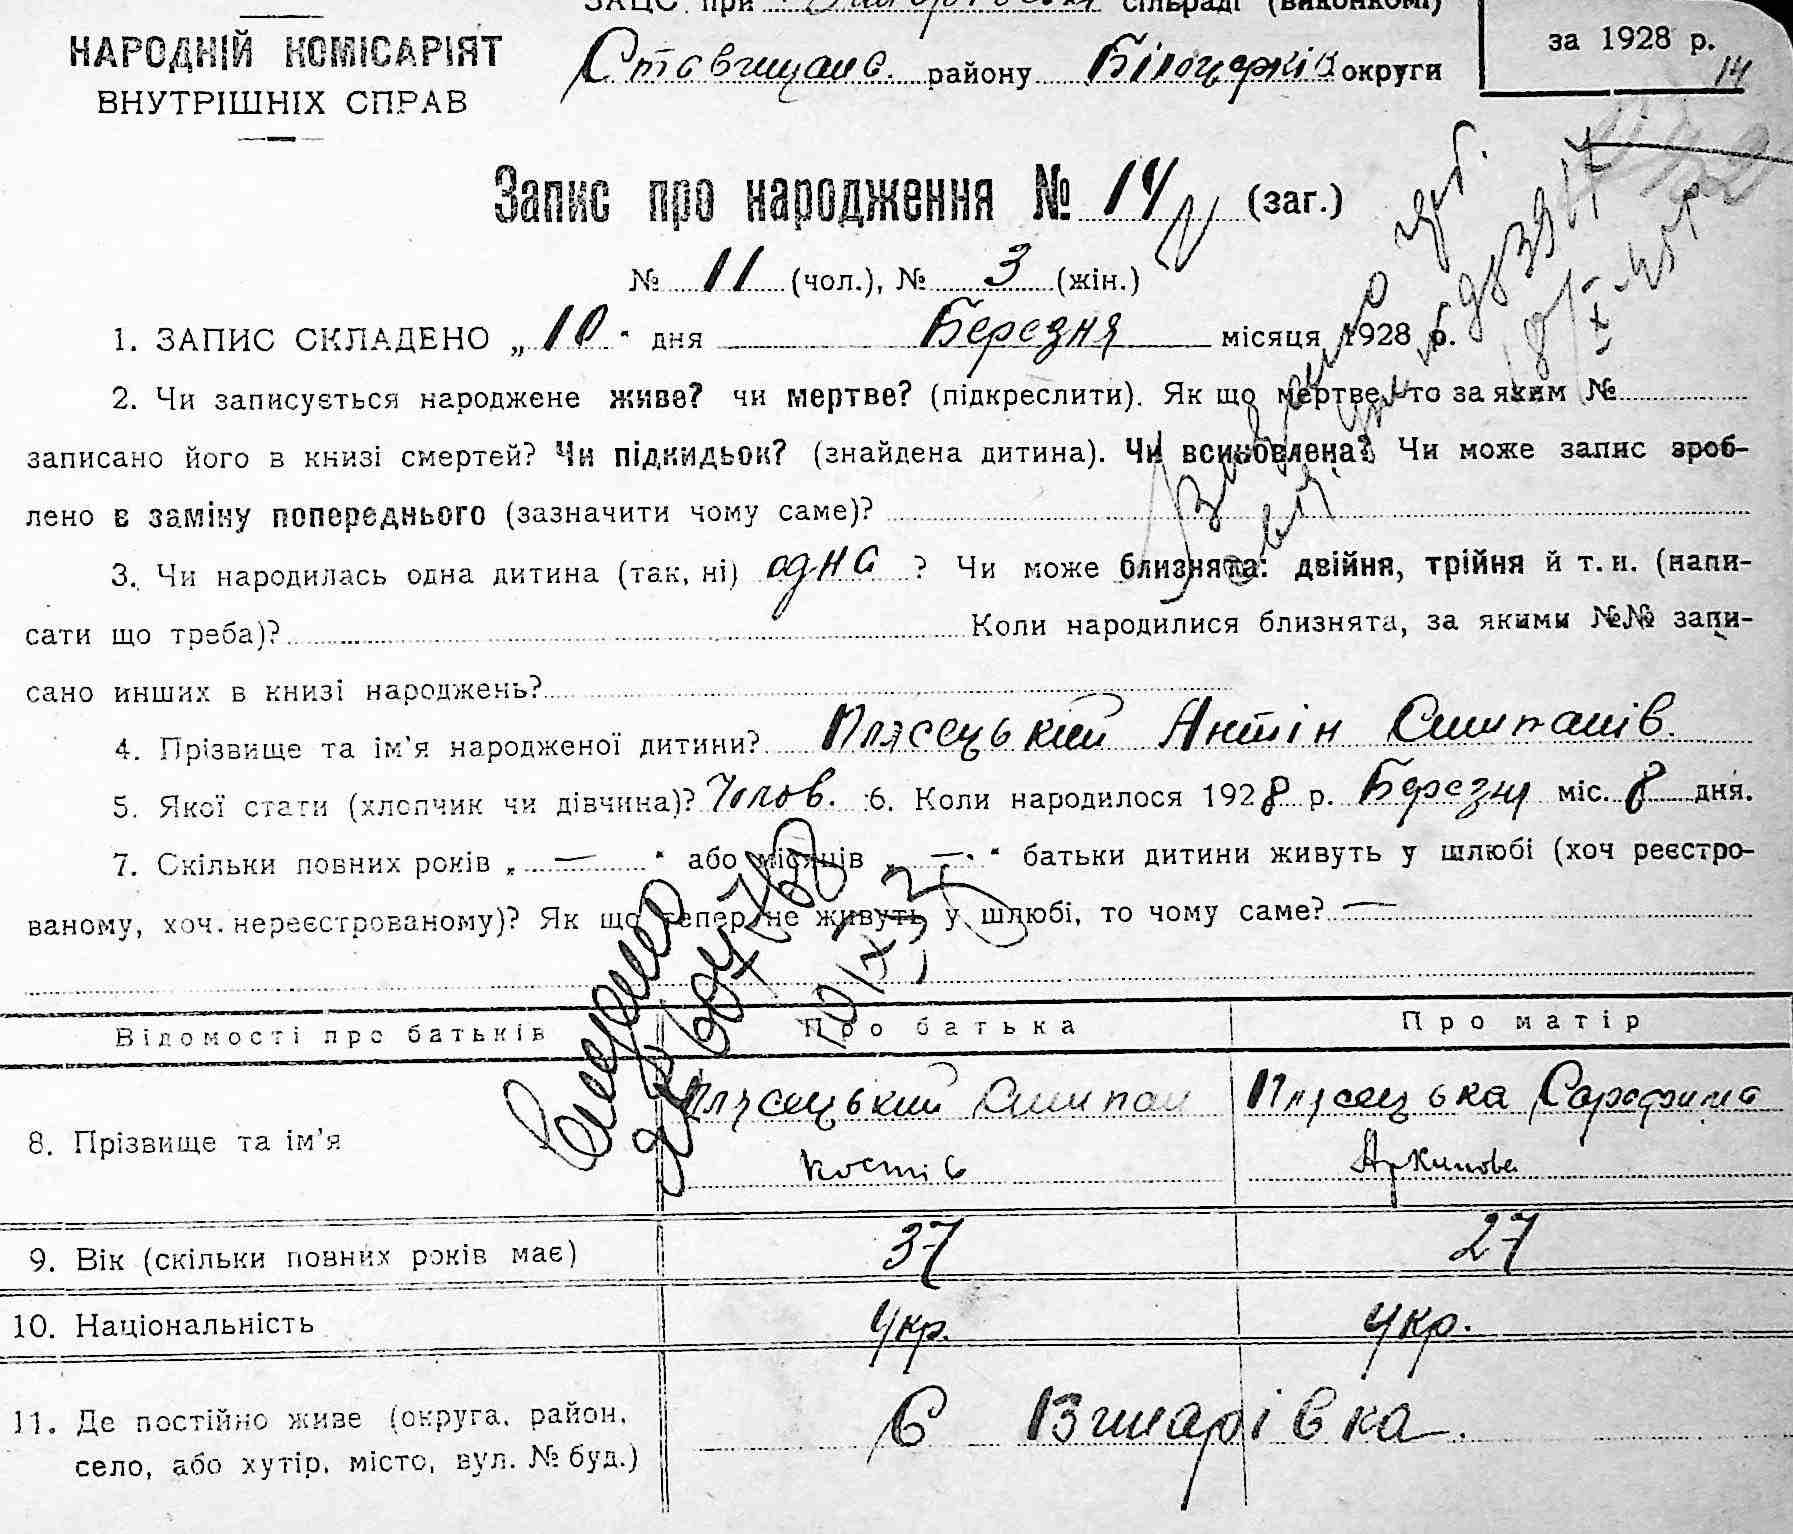 ЗАЦС при сільраді (виконкомі)
НАРОДНІЙ КОМІСАРІЯТ
ВНУТРІШНІХ СПРАВ
Ставищан. району Білоцерків округи
за 1928 р.
14
Запис про народження № 14 (заг.)
№ 11 (чол.), № 3 (жін.)
1. ЗАПИС СКЛАДЕНО „ 10 " дня Березня місяця 1928 р.
2. Чи записується народжене живе? чи мертве? (підкреслити). Як що мертве, то за яким №
записано його в книзі смертей? Чи підкидьок? (знайдена дитина). Чи всиновлена? Чи може запис зроб-
лено в заміну попереднього (зазначити чому саме)?
3. Чи народилась одна дитина (так, ні) одна ? Чи може близнята: двійня, трійня й т. и. (напи-
сати що треба)? Коли народилися близнята, за якими №№ запи-
сано инших в книзі народжень?
4. Прізвище та ім'я народженої дитини? Плясецький Антін Степанів.
5. Якої стати (хлопчик чи дівчина)? Чолов. 6. Коли народилося 1928 р. Березня міс. 8 дня.
7. Скільки повних років „ — " або місяців „ — " батьки дитини живуть у шлюбі (хоч реєстро-
ваному, хоч нереєстрованому)? Як що тепер не живуть у шлюбі, то чому саме? —
Відомості про батьків Про батька Про матір
8. Прізвище та ім'я Плясецький Степан Плясецька
Костів Архипова
9. Вік (скільки повних років має) 37 27
10. Національність Укр. Укр.
11. Де постійно живе (округа, район, с Взшарівка.
село, або хутір, місто, вул. № буд.)